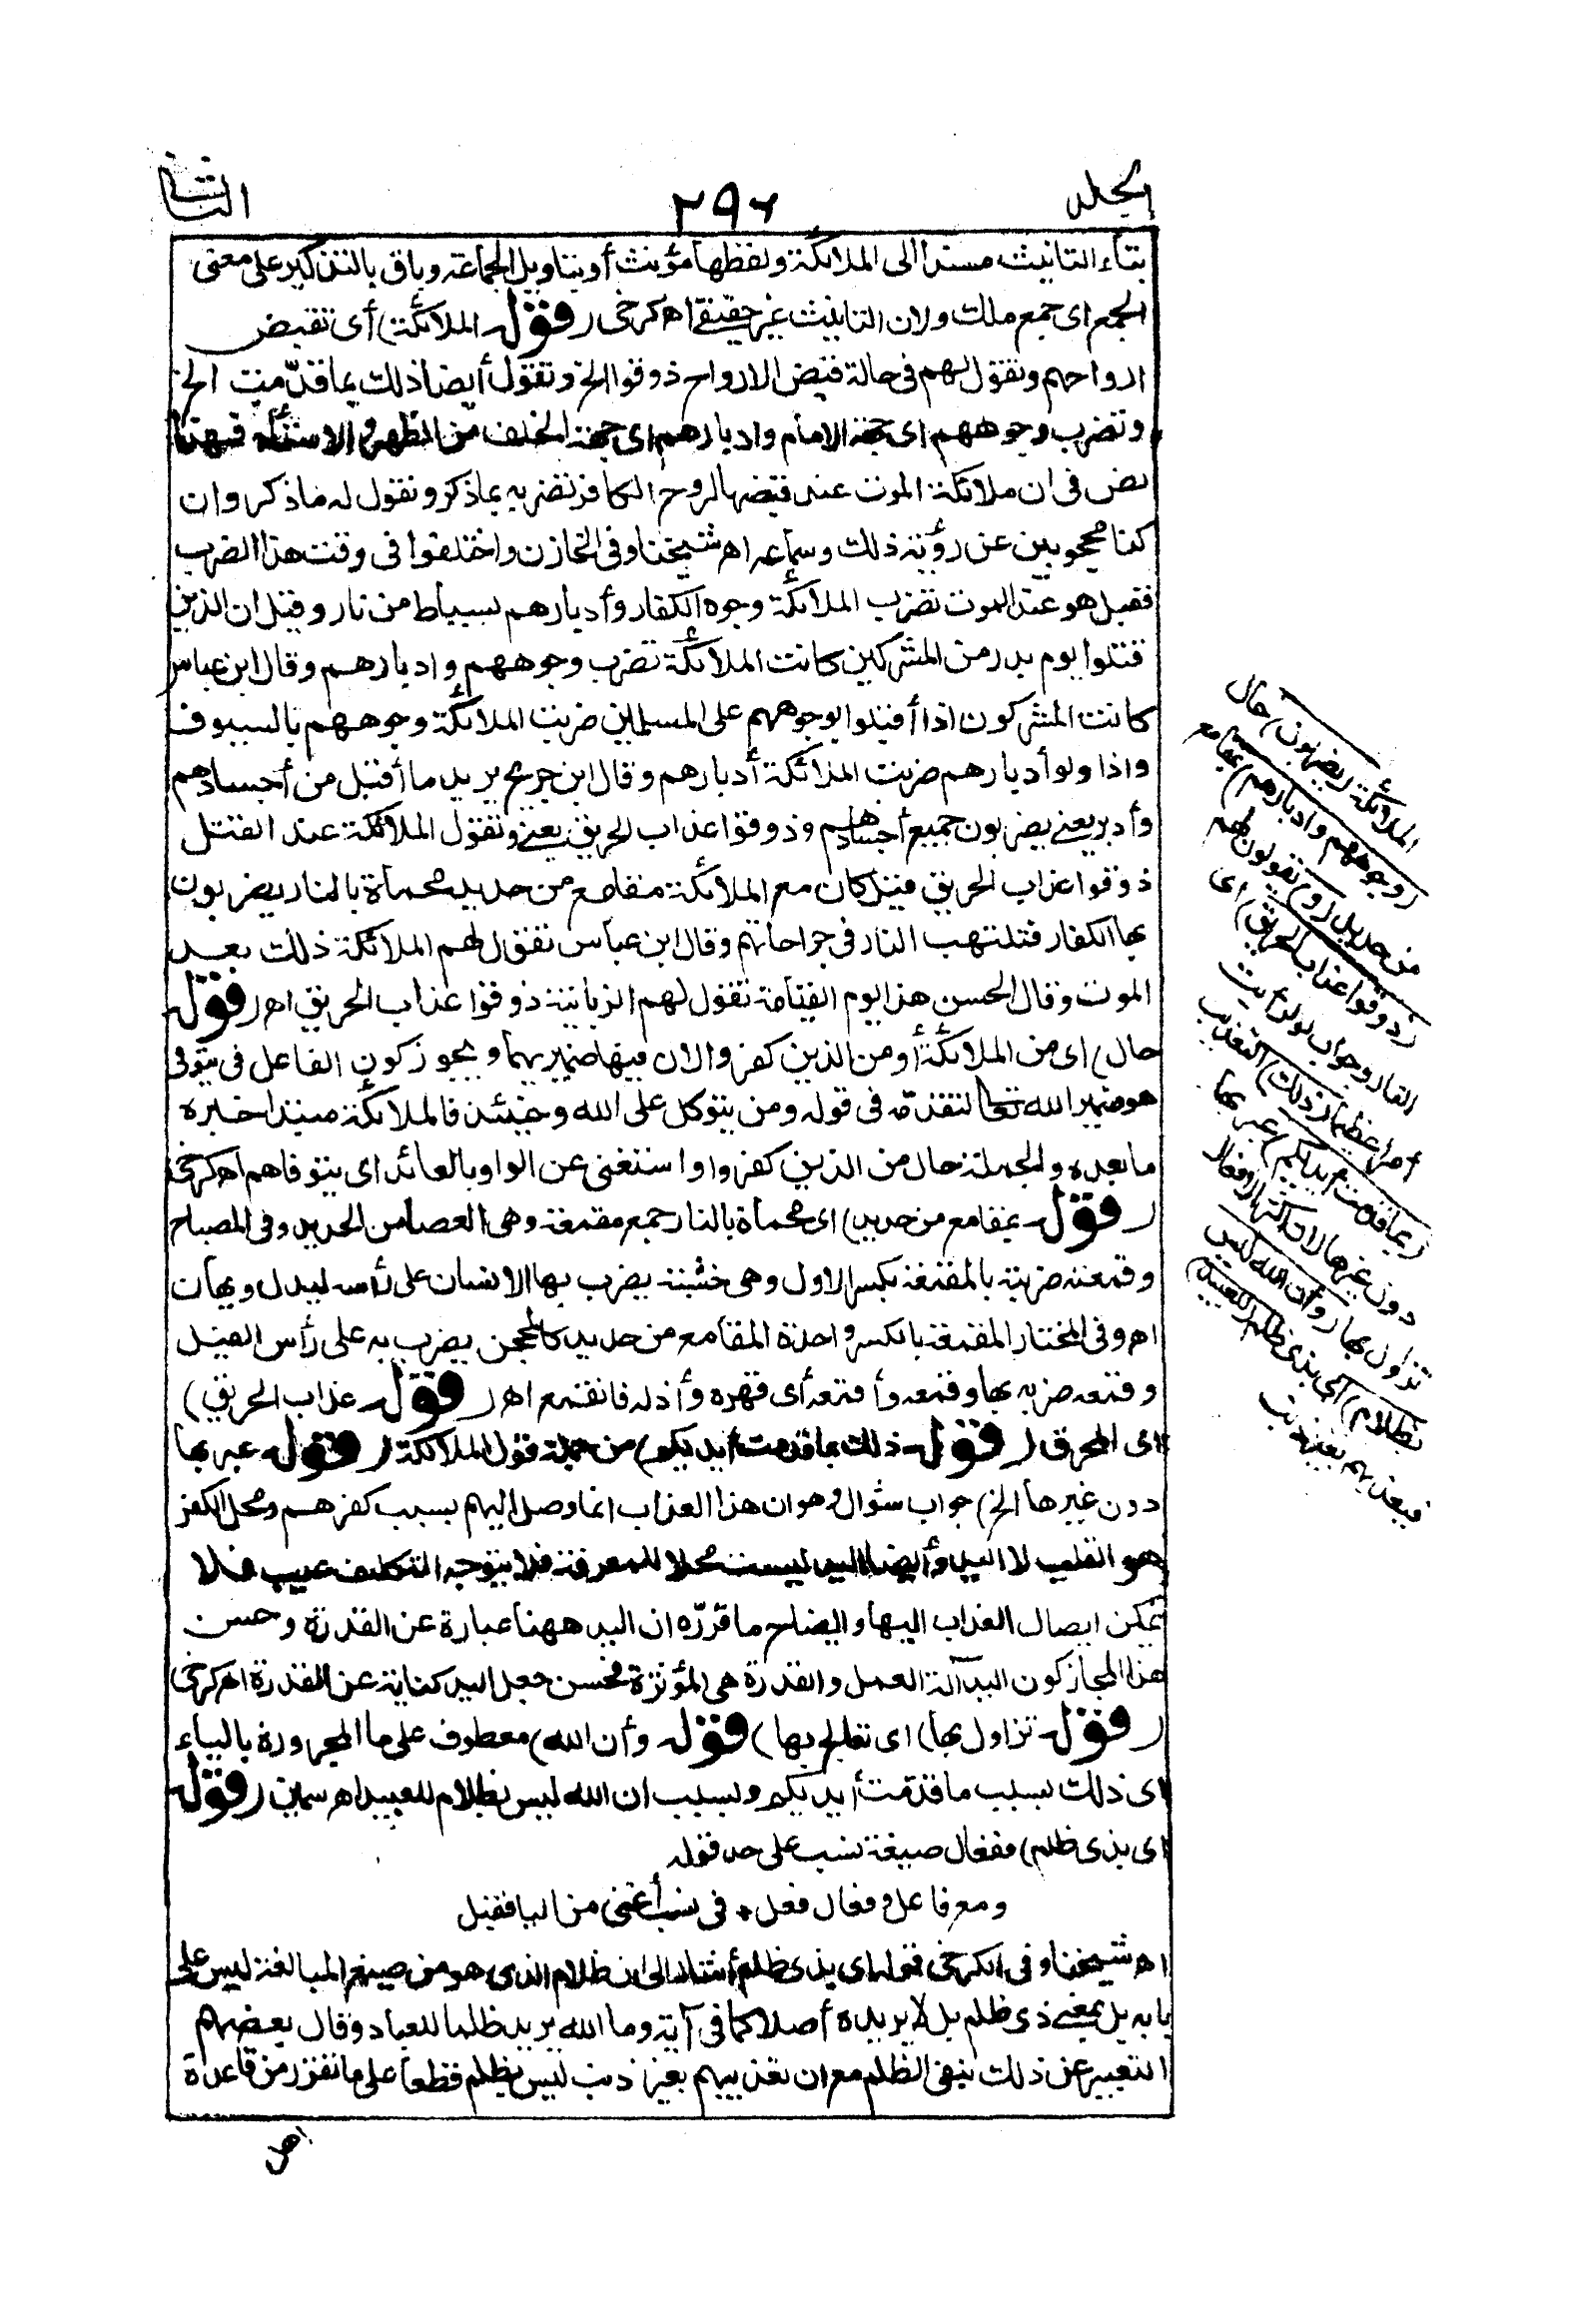 الجلد
٢٩٦
الثاني
بتاء التانيث مسندا الى الملائكة ولفظها مؤنث أو بتاويل الجماعة وباق بالتذكير على معنى
الجمع اى جمع ملك ولان التانيث غير حقيقى اهـ كرخى (قوله الملائكة) أى تقبض
ارواحهم وتقول لهم فى حالة قبض الارواح ذوقوا الخ وتقول أيضا ذلك بما قدّمت الخ
وتضرب وجوههم اى جهة الامام وادبارهم اى جهة الخلف من الظهر والاستاه فهذا
نص فى ان ملائكة الموت عند قبضها لروح الكافر تضربه بما ذكر وتقول له ما ذكر وان
كنا محجوبين عن رؤية ذلك وسماعه اهـ شيخنا وفى الخازن واختلفوا فى وقت هذا الضرب
فقيل هو عند الموت تضرب الملائكة وجوه الكفار وأدبارهم بسياط من نار وقيل ان الذين
قتلوا يوم بدر من المشركين كانت الملائكة تضرب وجوههم وادبارهم وقال ابن عباس
كانت المشركون اذا أقبلوا بوجوههم على المسلمين ضربت الملائكة وجوههم بالسيوف
واذا ولوا أدبارهم ضربت الملائكة أدبارهم وقال ابن جريج يريد ما أقبل من أجسادهم
وأدبر يعنى يضربون جميع أجسادهم وذوقوا عذاب الحريق يعنى وتقول الملائكة عند القتل
ذوقوا عذاب الحريق قيل كان مع الملائكة مقامع من حديد محماة بالنار يضربون
بها الكفار فتلتهب النار فى جراحاتهم وقال ابن عباس تقول لهم الملائكة ذلك بعد
الموت وقال الحسن هذا يوم القيامة تقول لهم الزبانية ذوقوا عذاب الحريق اهـ (قوله
حال) اى من الملائكة أو من الذين كفروا لان فيها ضميريهما ويجوز كون الفاعل فى يتوفى
هو ضمير الله تعالى لتقدّمه فى قوله ومن يتوكل على الله وحينئذ فالملائكة مبتدا خبره
ما بعده والجملة حال من الذين كفروا واستغنى عن الواو بالعائد اى يتوفاهم اهـ كرخى
(قوله بمقامع من حديد) اى محماة بالنار جمع مقمعة وهى العصا من الحديد وفى المصباح
وقمعته ضربته بالمقمعة بكسر الاول وهى خشبة يضرب بها الانسان على رأسه ليذل ويهان
اهـ وفى المختار المقمعة بالكسر واحدة المقامع من حديد كالمحجن يضرب به على رأس الفيل
وقمعه ضربه بها وقمعه وأقمعه أى قهره وأذله فانقمع اهـ (قوله عذاب الحريق)
اى المحرق (قوله ذلك بما قدمت أيديكم) من جملة قول الملائكة (قوله عبر بها
دون غيرها الخ) جواب سئوال وهو ان هذا العذاب انما وصل اليهم بسبب كفرهم ومحل الكفر
هو القلب لا اليد وأيضا اليد ليست محلا للمعرفة فلا يتوجه التكليف عليها فلا
يمكن ايصال العذاب اليها وايضاح ما قرّره ان اليد ههنا عبارة عن القدرة وحسن
هذا المجاز كون اليد آلة العمل والقدرة هى المؤثرة فحسن جعل اليد كناية عن القدرة اهـ كرخى
(قوله تزاول بها) اى تعالج بها) قوله وأن الله) معطوف على ما المجرورة بالباء
اى ذلك بسبب ما قدمت أيديكم وبسبب ان الله ليس بظلام للعبيد اهـ سمين (قوله
اى بذى ظلم) ففعال صيغة نسب على حد قوله
ومع فاعل وفعال فعل * فى نسب أغنى من اليا فقبل
اهـ شيخنا وفى الكرخى قوله اى بذى ظلم أشار الى ان ظلام الذى هو من صيغ المبالغة ليس على
بابه بل بمعنى ذى ظلم بل لا يريده أصلا كما فى آية وما الله يريد ظلما للعباد وقال بعضهم
التعبير عن ذلك بنفى الظلم مع ان تعذيبهم بغير ذنب ليس بظلم قطعا على ما تقرر من قاعدة
اهل
الملائكة يضربون) حال
(وجوههم وادبارهم) بمقامع
من حديد (و) تقولون لهم
(ذوقوا عذاب الحريق) اى
النار وجواب لو لرأيت
أمرا عظيما (ذلك) التعذيب
(بما قدمت أيديكم) عبر بها
دون غيرها لان اكثر الافعال
تزاول بها (وأن الله ليس
بظلام) أى بذى ظلم (للعبيد)
فيعذبهم بغير ذنب